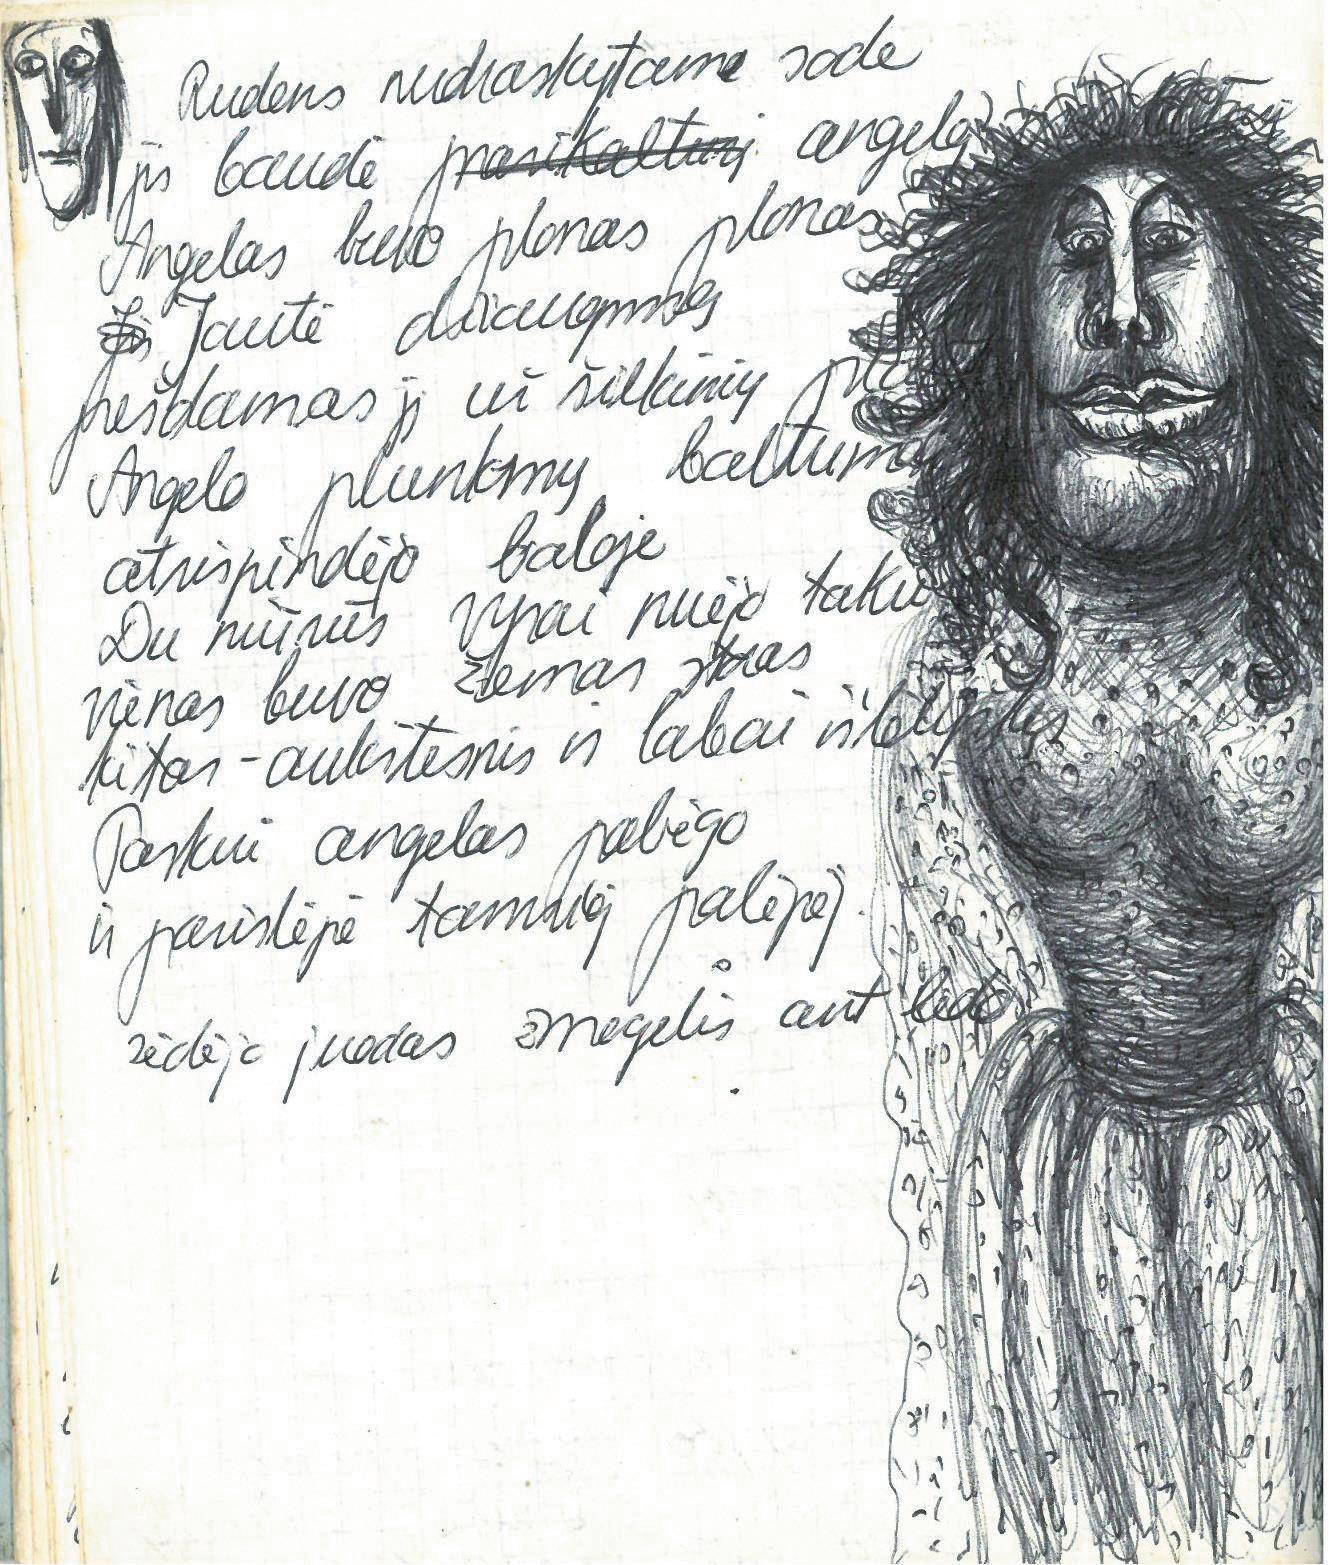 Rudens nudraskytame sode
jis baudė prasikaltusį angelą
Angelas buvo plonas plonas
Jis Jautė džiaugsmą
pešdamas jį už šilkinių
Angelo plunksnų baltumas
atsispindėjo baloje
Du niūrūs vyrai nuėjo taku
vienas buvo žemas storas
kitas - aukštesnis ir labai ištįsęs
Paskui angelas pabėgo
ir pasislėpė tamsioj palėpėj.
sėdėjo juodas žmogelis ant ledo